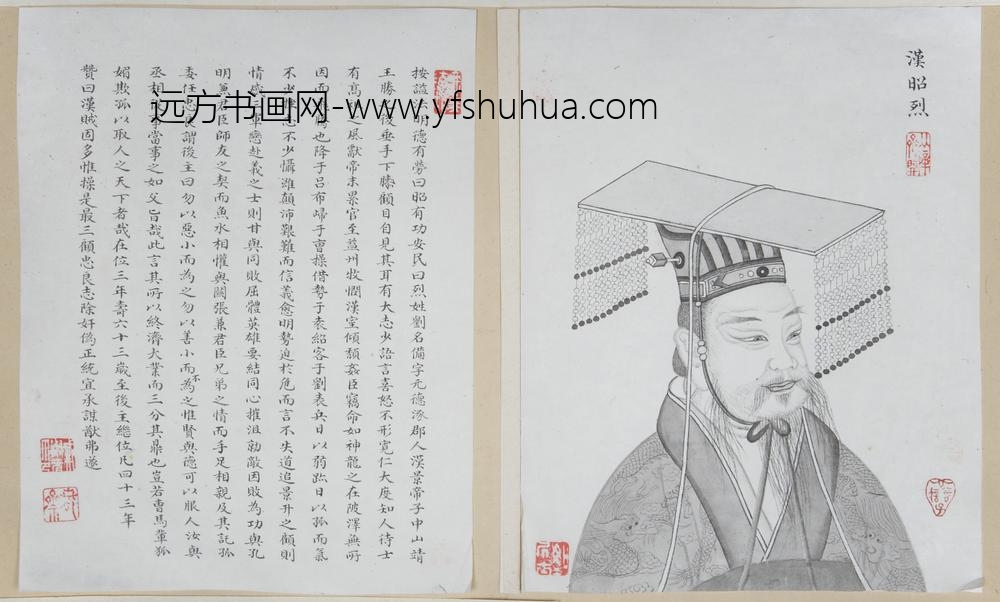 漢昭烈
按謚法明德有勞曰昭有功安民曰烈姓劉名備字元德涿郡人漢景帝子中山靖
王勝之後垂手下膝顧目自見其耳有大志少語言喜怒不形寬仁大度知人待士
有高祖之風獻帝末累官至益州牧憫漢室傾頹姦臣竊命如神龍之在陂澤無所
因而也降于呂布歸于曹操借勢于袁紹客于劉表兵日以弱跡日以孤而氣
不少忘不少懾雖顛沛艱難而信義愈明勢迫於危而言不失道追景升之顧則
情感三軍戀赴義之士則甘與同敗屈體英雄要結同心摧沮勍敵因敗為功與孔
明兼君臣師友之契而魚水相懽與關張兼君臣兄弟之情而手足相親及其託孤
委任忠良謂後主曰勿以惡小而為之勿以善小而不為之惟賢與德可以服人汝與
丞相當事之如父旨哉此言其所以終濟大業而三分其鼎也豈若曹馬輩狐
媚欺孤以取人之天下者哉在位三年壽六十三歲至後主繼位凡四十三年
贊曰漢賊固多惟操是最三顧忠良志除奸偽正統宜承謀猷弗遂
远方书画网-www.yfshuhua.com